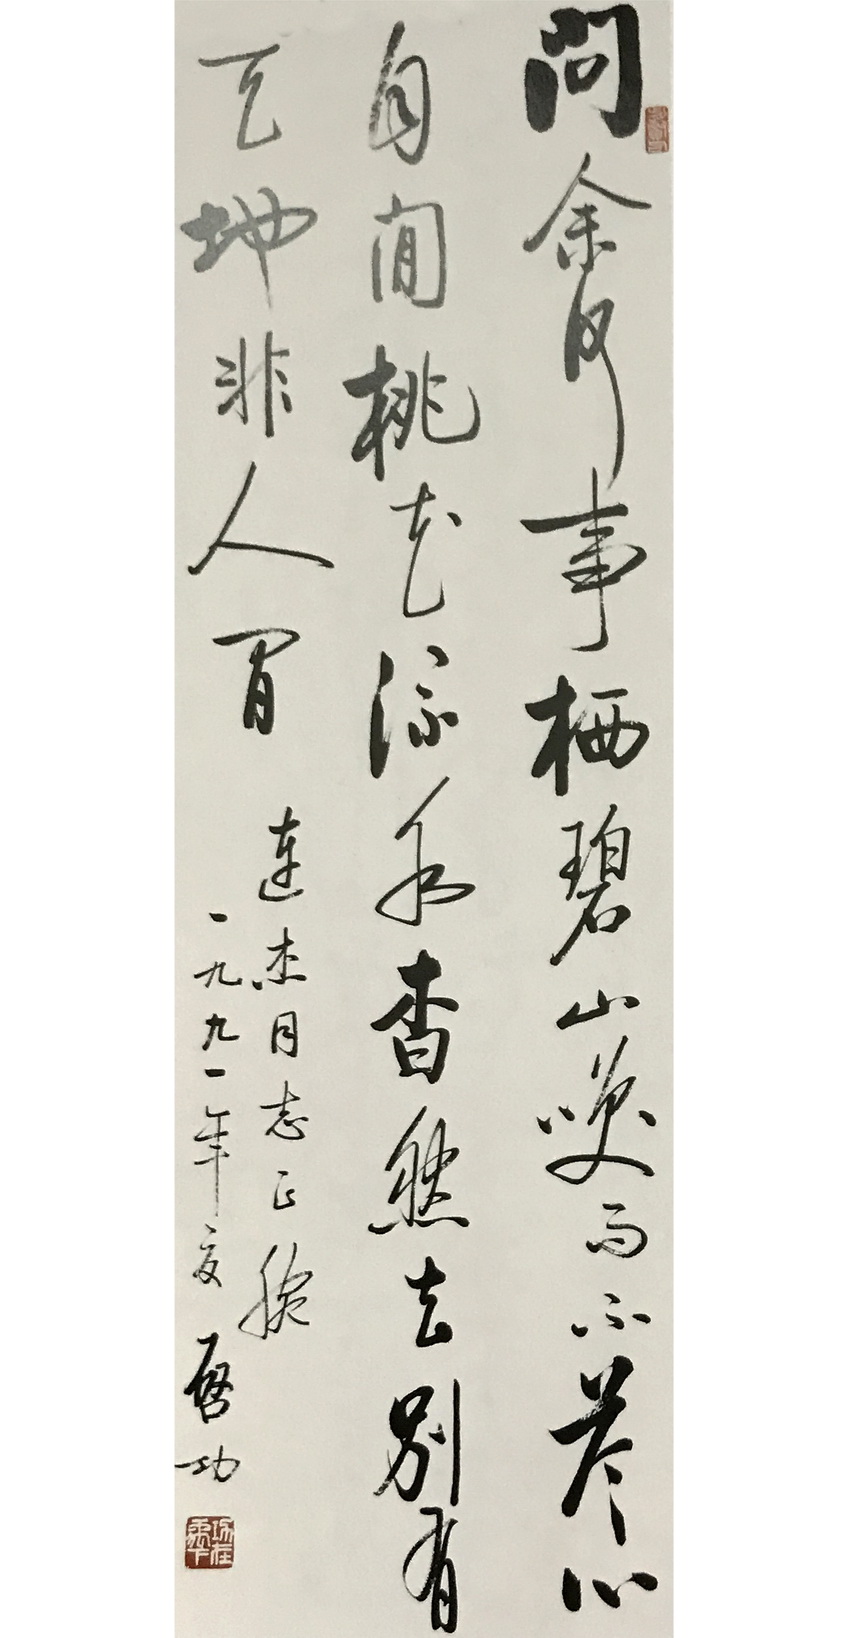 問余何事栖碧山笑而不答心
自閒桃花流水杳然去別有
天地非人間
連杰同志正腕
一九九一年夏 啓功